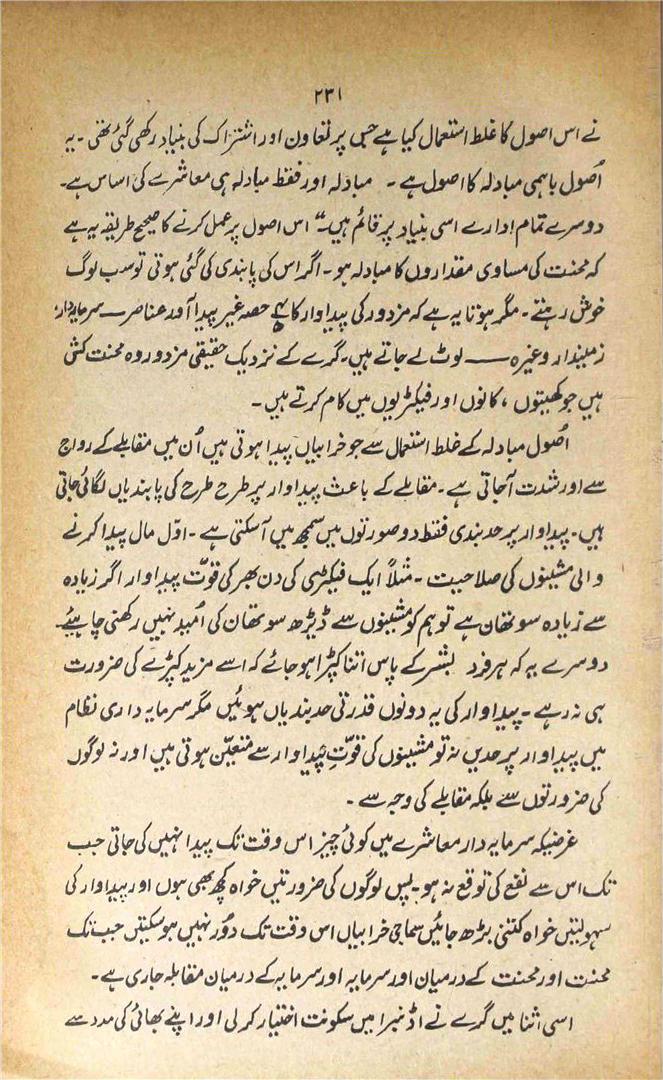 ۲۳۱
نے اس اصول کا غلط استعمال کیا ہے جس پر تعاون اور اشتراک کی بنیاد رکھی گئی تھی۔ یہ
اُصول باہمی مبادلہ کا اصول ہے۔ مبادلہ اور فقط مبادلہ ہی معاشرے کی اساس ہے۔
دوسرے تمام ادارے اسی بنیاد پر قائم ہیں۔" اس اصول پر عمل کرنے کا صحیح طریقہ یہ ہے
کہ محنت کی مساوی مقداروں کا مبادلہ ہو۔ اگر اس کی پابندی کی گئی ہوتی تو سب لوگ
خوش رہتے۔ مگر ہوتا یہ ہے کہ مزدور کی پیداوار کا حصہ غیر پیدا آور عناصر — سرمایہ دار،
زمیندار وغیرہ — لوٹ لے جاتے ہیں۔ گرے کے نزدیک حقیقی مزدور وہ محنت کش
ہیں جو کھیتوں، کانوں اور فیکٹریوں میں کام کرتے ہیں۔
اُصول مبادلہ کے غلط استعمال سے جو خرابیاں پیدا ہوتی ہیں اُن میں مقابلے کے رواج
سے اور شدت آجاتی ہے۔ مقابلے کے باعث پیداوار پر طرح طرح کی پابندیاں لگائی جاتی
ہیں۔ پیداوار پر حد بندی فقط دو صورتوں میں سمجھ میں آسکتی ہے۔ اوّل مال پیدا کرنے
والی مشینوں کی صلاحیت۔ مثلاً ایک فیکٹری کی دن بھر کی قوّت پیداوار اگر زیادہ
سے زیادہ سو تھان ہے تو ہم کو مشینوں سے ڈیڑھ سو تھان کی اُمید نہیں رکھنی چاہیئے۔
دوسرے یہ کہ ہر فرد بشر کے پاس اتنا کپڑا ہو جائے کہ اسے مزید کپڑے کی ضرورت
ہی نہ رہے۔ پیداوار کی یہ دونوں قدرتی حد بندیاں ہوئیں مگر سرمایہ داری نظام
میں پیداوار پر حدیں نہ تو مشینوں کی قوّتِ پیداوار سے متعیّن ہوتی ہیں اور نہ لوگوں
کی ضرورتوں سے بلکہ مقابلے کی وجہ سے۔
غرضیکہ سرمایہ دار معاشرے میں کوئی چیز اس وقت تک پیدا نہیں کی جاتی جب
تک اس سے نفع کی توقع نہ ہو۔ پس لوگوں کی ضرورتیں خواہ کچھ بھی ہوں اور پیداوار کی
سہولتیں خواہ کتنی بڑھ جائیں سماجی خرابیاں اس وقت تک دُور نہیں ہو سکتیں جب تک
محنت اور محنت کے درمیان اور سرمایہ اور سرمایہ کے درمیان مقابلہ جاری ہے۔
اسی اثنا میں گرے نے اڈنبرا میں سکونت اختیار کر لی اور اپنے بھائی کی مدد سے